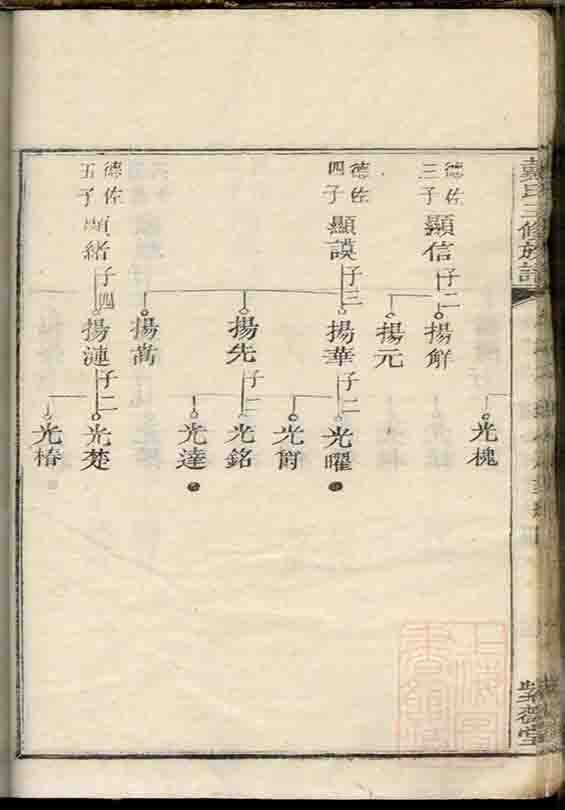 戴氏三修族譜
紫微堂
光槐
德佐三子
顯信
子二
揚解
揚元
德佐四子
顯謨
子三
揚華
子二
光曜
光爵
揚先
子二
光銘
光達
揚萬
德佐五子
顯緒
子四
揚漣
子二
光楚
光椿